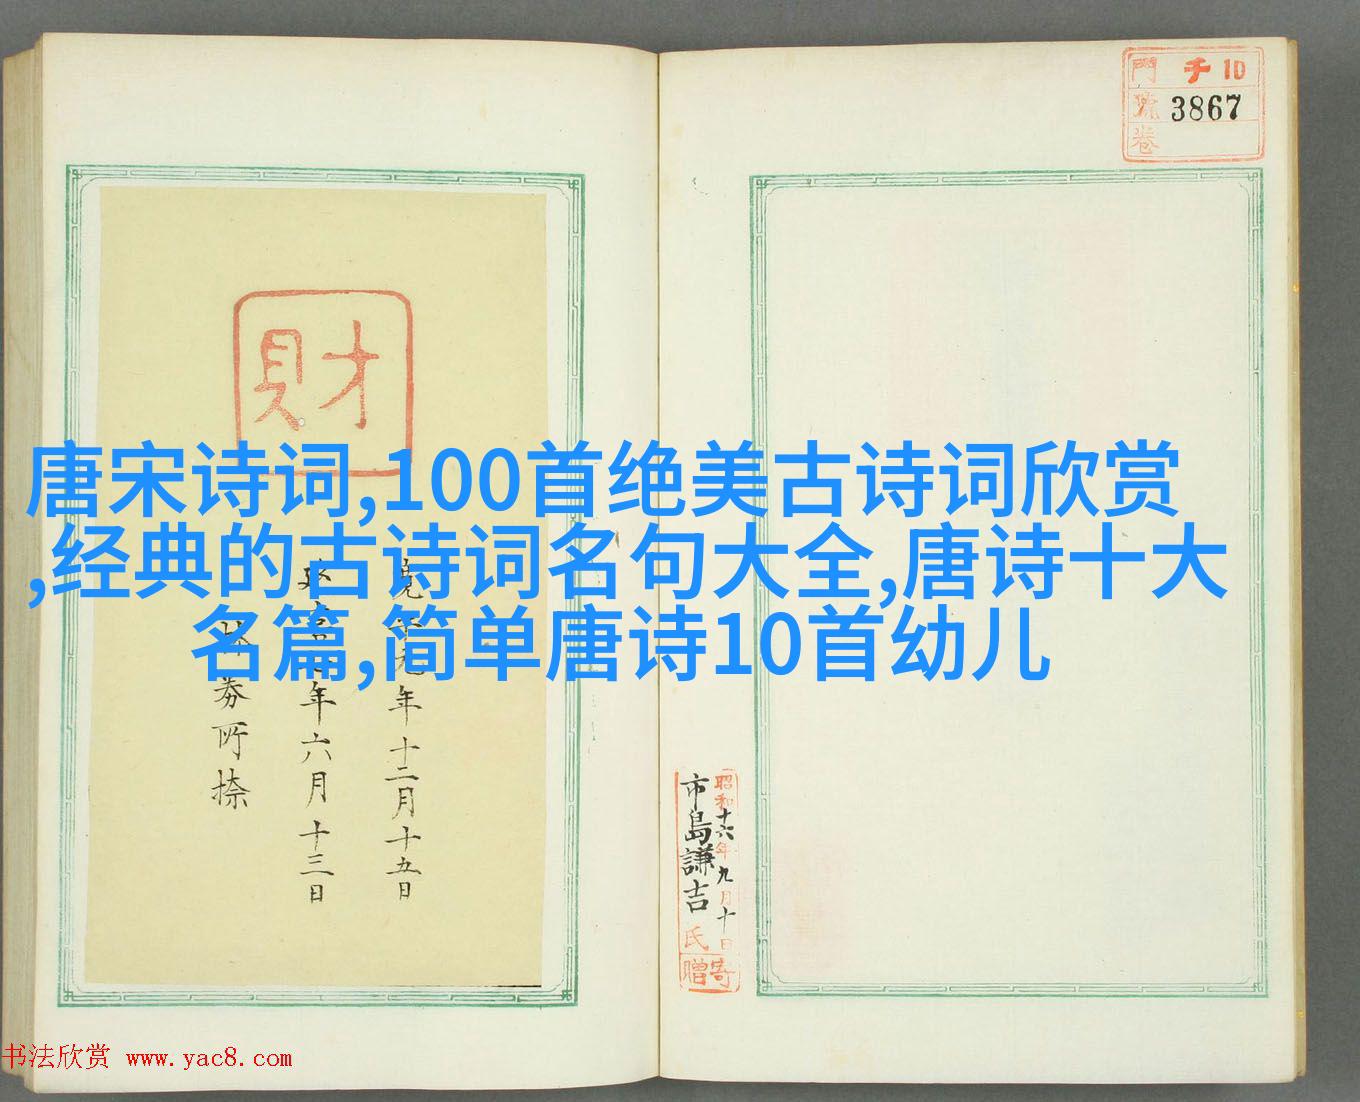 門 千10
號 3867
卷
財
唐宋诗词,100首绝美古诗词欣赏
,经典的古诗词名句大全,唐诗十大
名篇,简单唐诗10首幼儿
元年十二月十五日
年六月十三日
券所捺
昭和十六年九月十日
市島謙吉氏
寄贈
书法欣赏 www.yac8.com